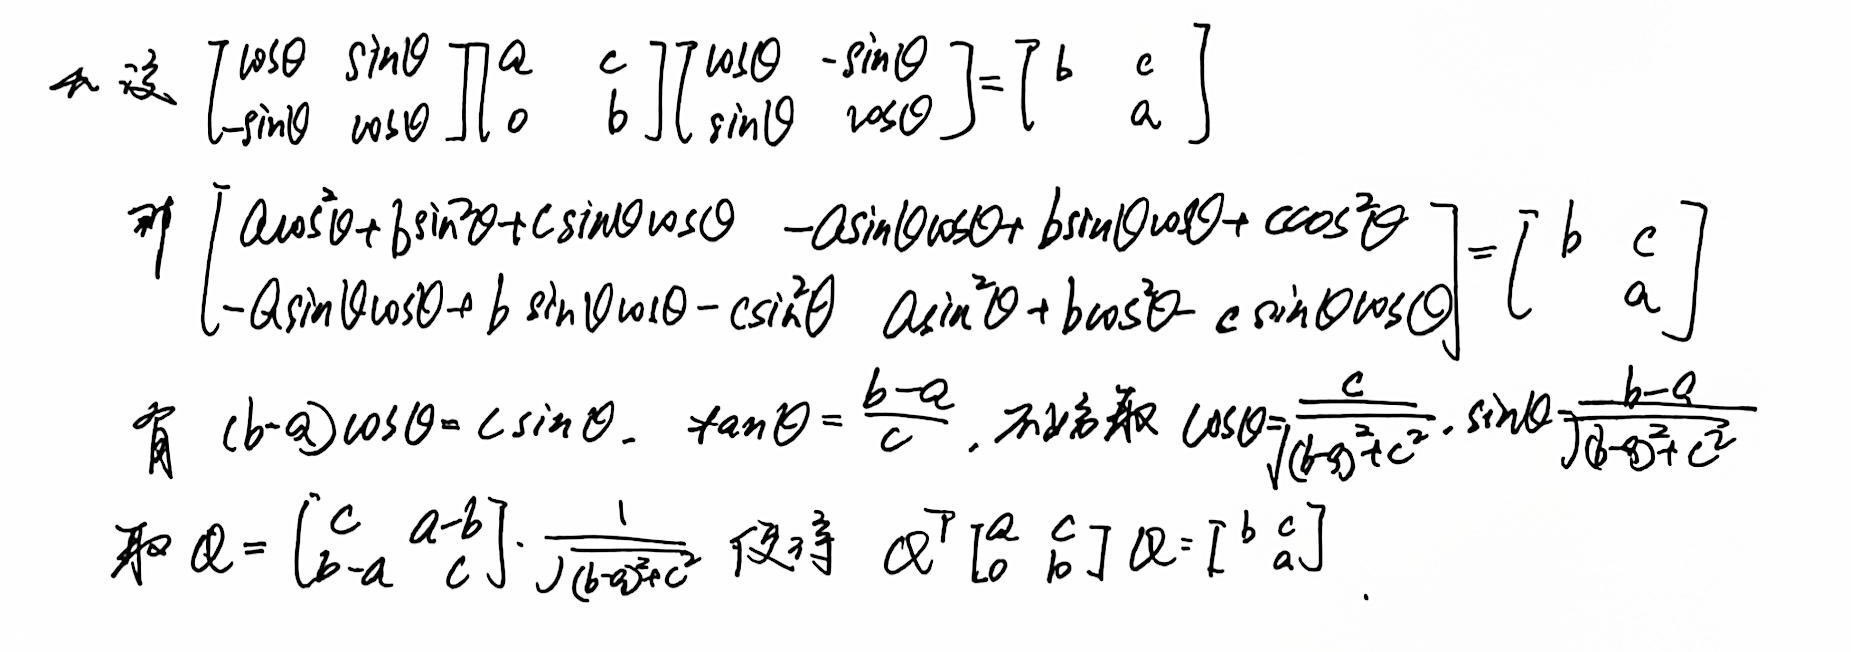 设 [cosθ sinθ; -sinθ cosθ][a c; 0 b][cosθ -sinθ; sinθ cosθ] = [b c; a]
则 [acos²θ+bsin²θ+csinθcosθ -asinθcosθ+bsinθcosθ+ccos²θ; -asinθcosθ+bsinθcosθ-csin²θ asin²θ+bcos²θ-csinθcosθ] = [b c; a]
有 (b-a)cosθ=csinθ. tanθ=(b-a)/c, 不妨取 cosθ=c/√((b-a)²+c²), sinθ=(b-a)/√((b-a)²+c²)
取 Q=[c a-b; b-a c]·1/√((b-a)²+c²) 使得 Qᵀ[a c; 0 b]Q=[b c; a].